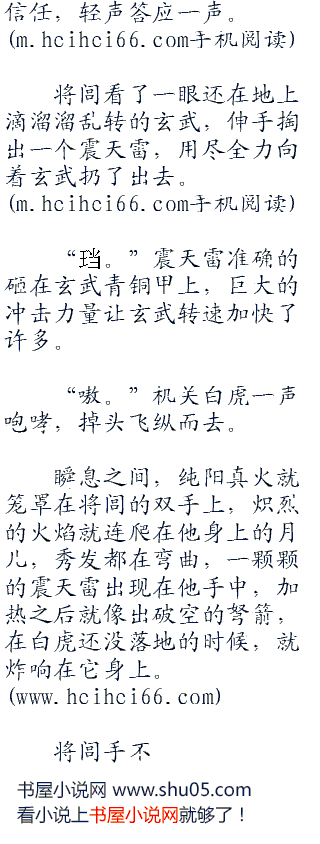 信任，轻声答应一声。
(m.hcihci66.com手机阅读)
将闾看了一眼还在地上
滴溜溜乱转的玄武，伸手掏
出一个震天雷，用尽全力向
着玄武扔了出去。
(m.hcihci66.com手机阅读)
“珰。”震天雷准确的
砸在玄武青铜甲上，巨大的
冲击力量让玄武转速加快了
许多。
“嗷。”机关白虎一声
咆哮，掉头飞纵而去。
瞬息之间，纯阳真火就
笼罩在将闾的双手上，炽烈
的火焰就连爬在他身上的月
儿，秀发都在弯曲，一颗颗
的震天雷出现在他手中，加
热之后就像出破空的弩箭，
在白虎还没落地的时候，就
炸响在它身上。
(www.hcihci66.com)
将闾手不
书屋小说网 www.shu05.com
看小说上书屋小说网就够了！